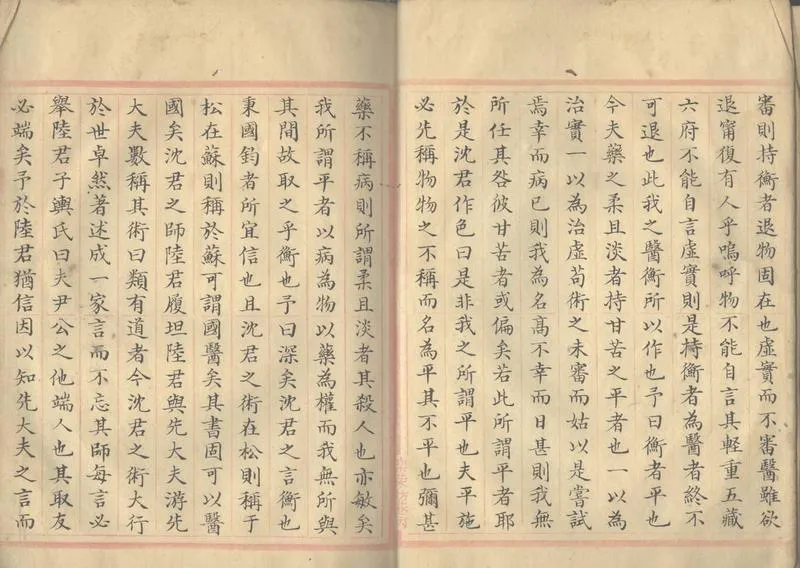 審則持衡者退物固在也虛實而不審醫雖欲
退甯復有人乎嗚呼物不能自言其輕重五藏
六府不能自言虛實則是持衡者為醫者終不
可退也此我之醫衡所以作也予曰衡者平也
今夫藥之柔且淡者持甘苦之平者也一以為
治實一以為治虛苟術之未審而姑以是嘗試
焉幸而病已則我為名高不幸而日甚則我無
所任其咎彼甘苦者或偏矣若此所謂平者耶
於是沈君作色曰是非我之所謂平也夫平施
必先稱物物之不稱而名為平其不平也彌甚
藥不稱病則所謂柔且淡者其殺人也亦敏矣
我所謂平者以病為物以藥為權而我無所與
其間故取之乎衡也予曰深矣沈君之言衡也
秉國鈞者所宜信也且沈君之術在松則稱于
松在蘇則稱於蘇可謂國醫矣其書固可以醫
國矣沈君之師陸君履坦陸君與先大夫游先
大夫數稱其術曰類有道者今沈君之術大行
於世卓然著述成一家言而不忘其師每言必
舉陸君子輿氏曰夫尹公之他端人也其取友
必端矣予於陸君猶信因以知先大夫之言而